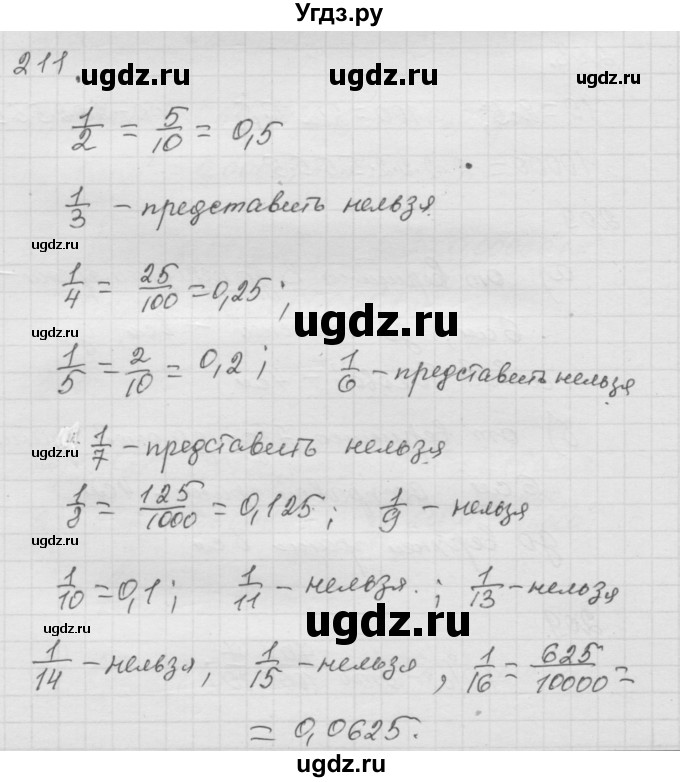 Угдз.ру
211.
ugdz.ru ugdz.ru
1/2 = 5/10 = 0,5
1/3 - представить нельзя.
ugdz.ru
1/4 = 25/100 = 0,25;
ugdz.ru
ugdz.ru
1/5 = 2/10 = 0,2; 1/6 - представить нельзя
1/7 - представить нельзя
ugdz.ru
1/8 = 125/1000 = 0,125; 1/9 - нельзя
ugdz.ru
1/10 = 0,1; 1/11 - нельзя.; 1/13 - нельзя
ugdz.ru
ugdz.ru
1/14 - нельзя, 1/15 - нельзя, 1/16 = 625/10000 =
= 0,0625.
ugdz.ru ugdz.ru